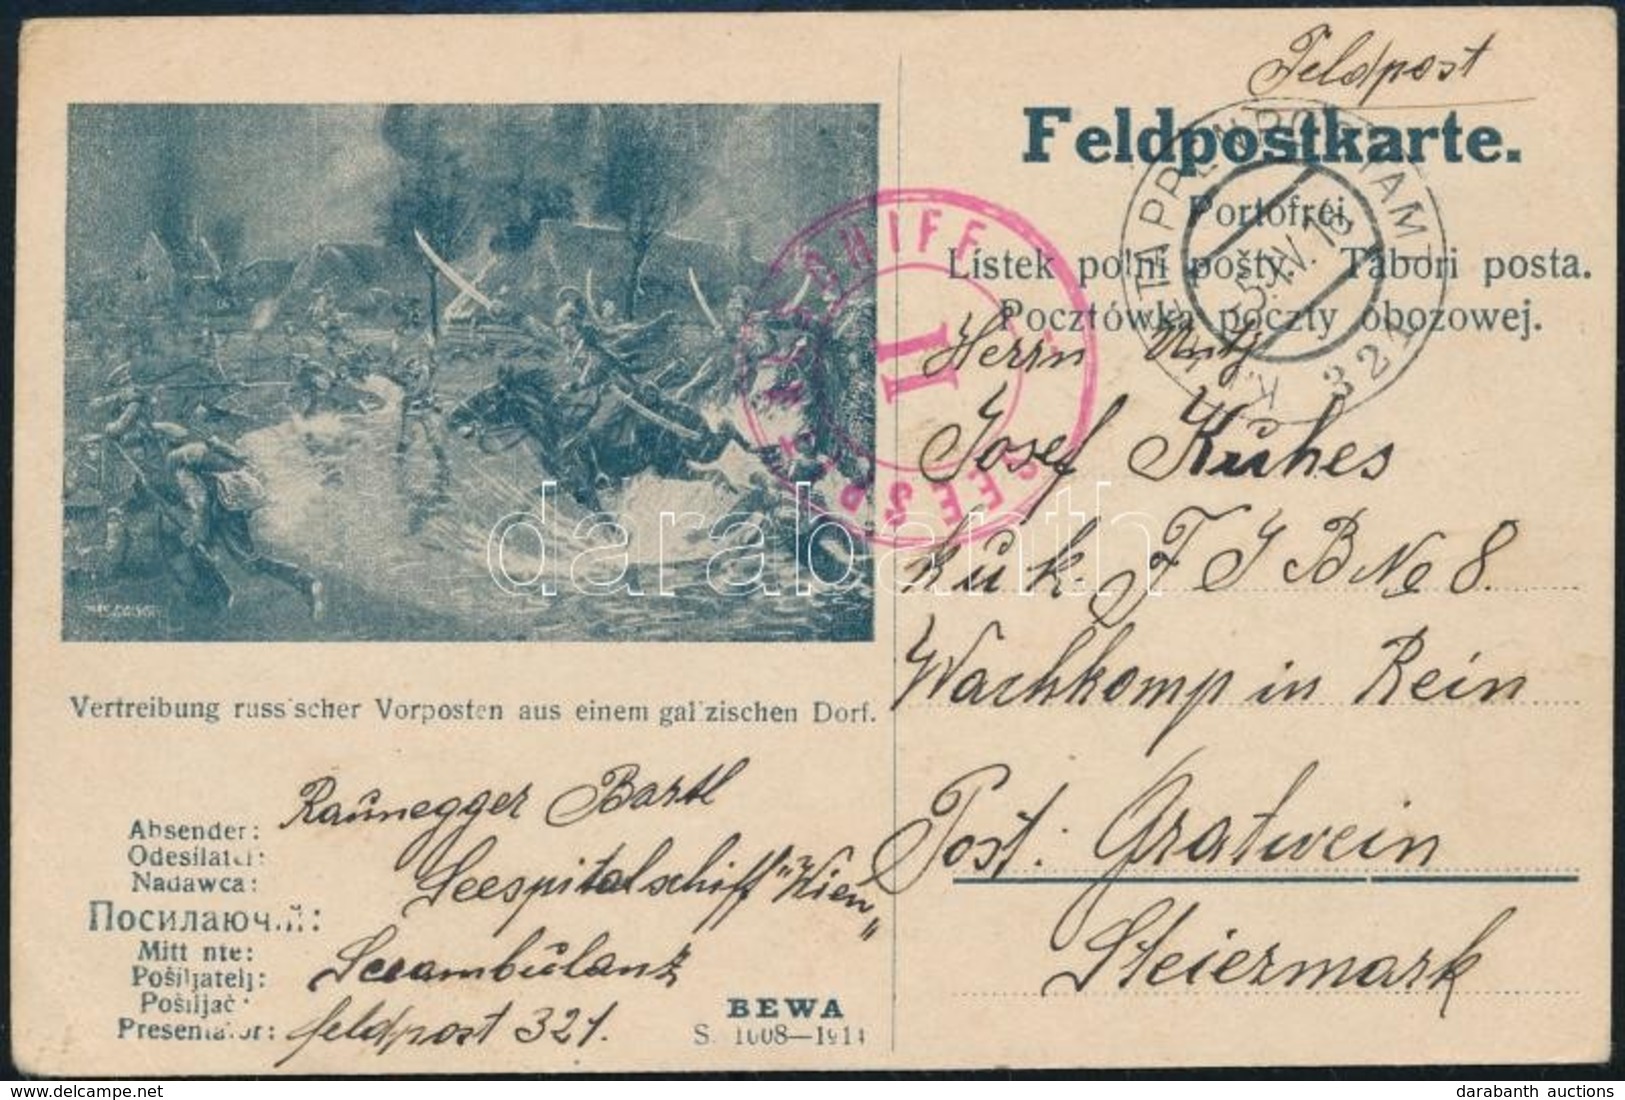 Feldpost
Feldpostkarte.
Portofrei.
Lístek polní pošty. Tábori posta.
Pocztówka poczty obozowej.
K.u.K. ETAPPENPOSTAMT 321
5.IV.16
SEESPITALSCHIFF II
Herrn
Josef Kuhes
k u k. F J B No 8.
Wachkomp in Rein
Post. Gratwein
Steiermark
Vertreibung russischer Vorposten aus einem galizischen Dorf.
Absender:
Odesílatel:
Nadawca:
Посилаючий:
Mittente:
Pošiljatelj:
Pošiljač:
Presentator:
Raunegger Bartl
Seespitalschiff "Wien"
Seeambulanz
feldpost 321.
BEWA
S. 1008—1914
darabanth
darabanth auctions